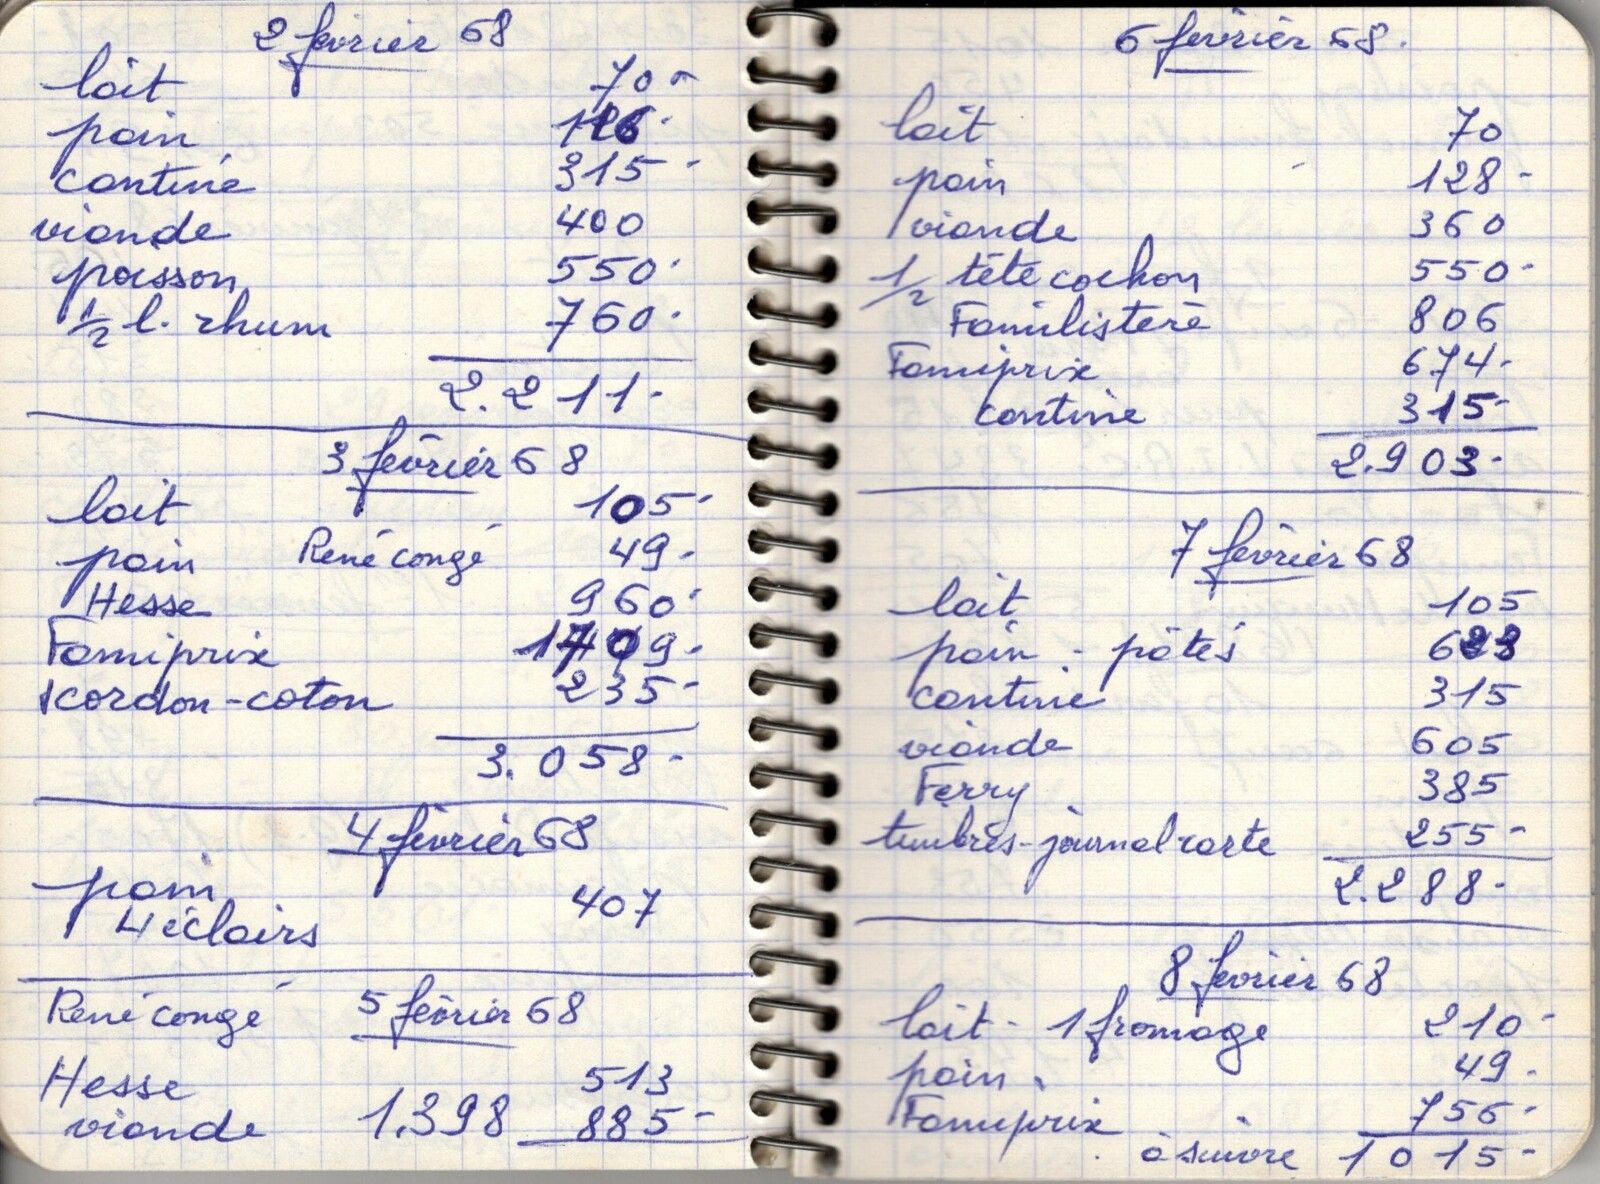 2 février 68
lait 70 -
pain 116.
cantine 315 -
viande 400
poisson 550.
1/2 l. rhum 760.
2.211.
3 février 68
lait 105 -
pain René congé 49 -
Hesse 960.
Famiprix 1709 -
cordon-coton 235 -
3.058 -
4 février 68
pain
4 éclairs 407
René congé 5 février 68
Hesse 513
viande 1.398 885 -
6 février 68.
lait 70
pain 128 -
viande 360
1/2 tête cochon 550 -
Familistère 806
Famiprix 674 -
cantine 315 -
2.903 -
7 février 68
lait 105
pain - pâtés 623
cantine 315
viande 605
Ferry 385
timbres-journal carte 255 -
2.288 -
8 février 68
lait - 1 fromage 210 -
pain. 49.
Famiprix 756 -
à suivre 1015 -